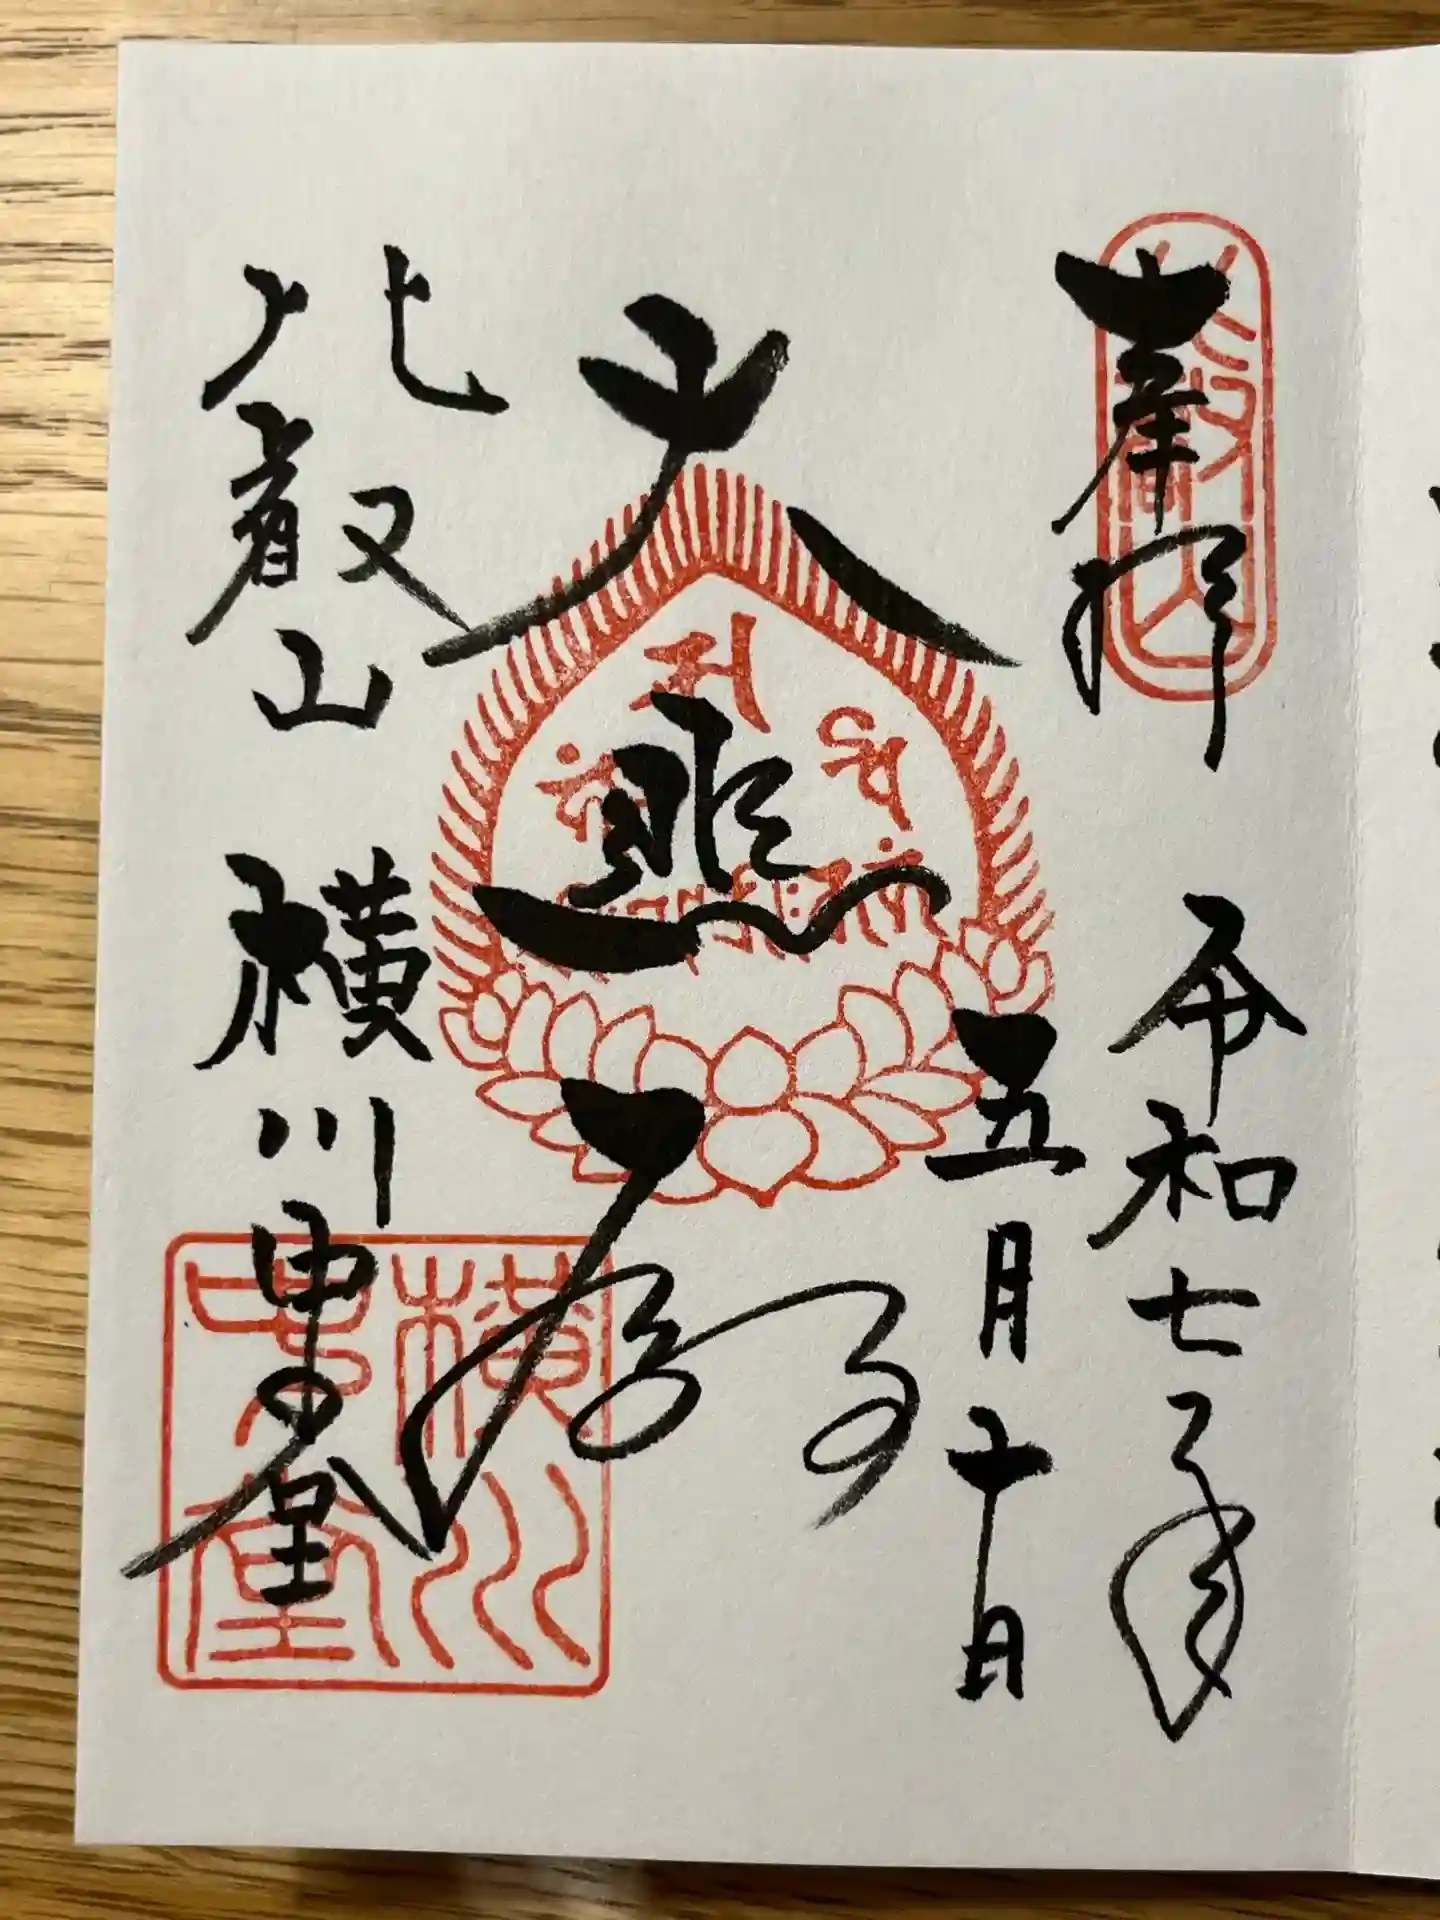 奉拝
令和七年
五月十日
大悲殿
比叡山 横川中堂
横川
中堂